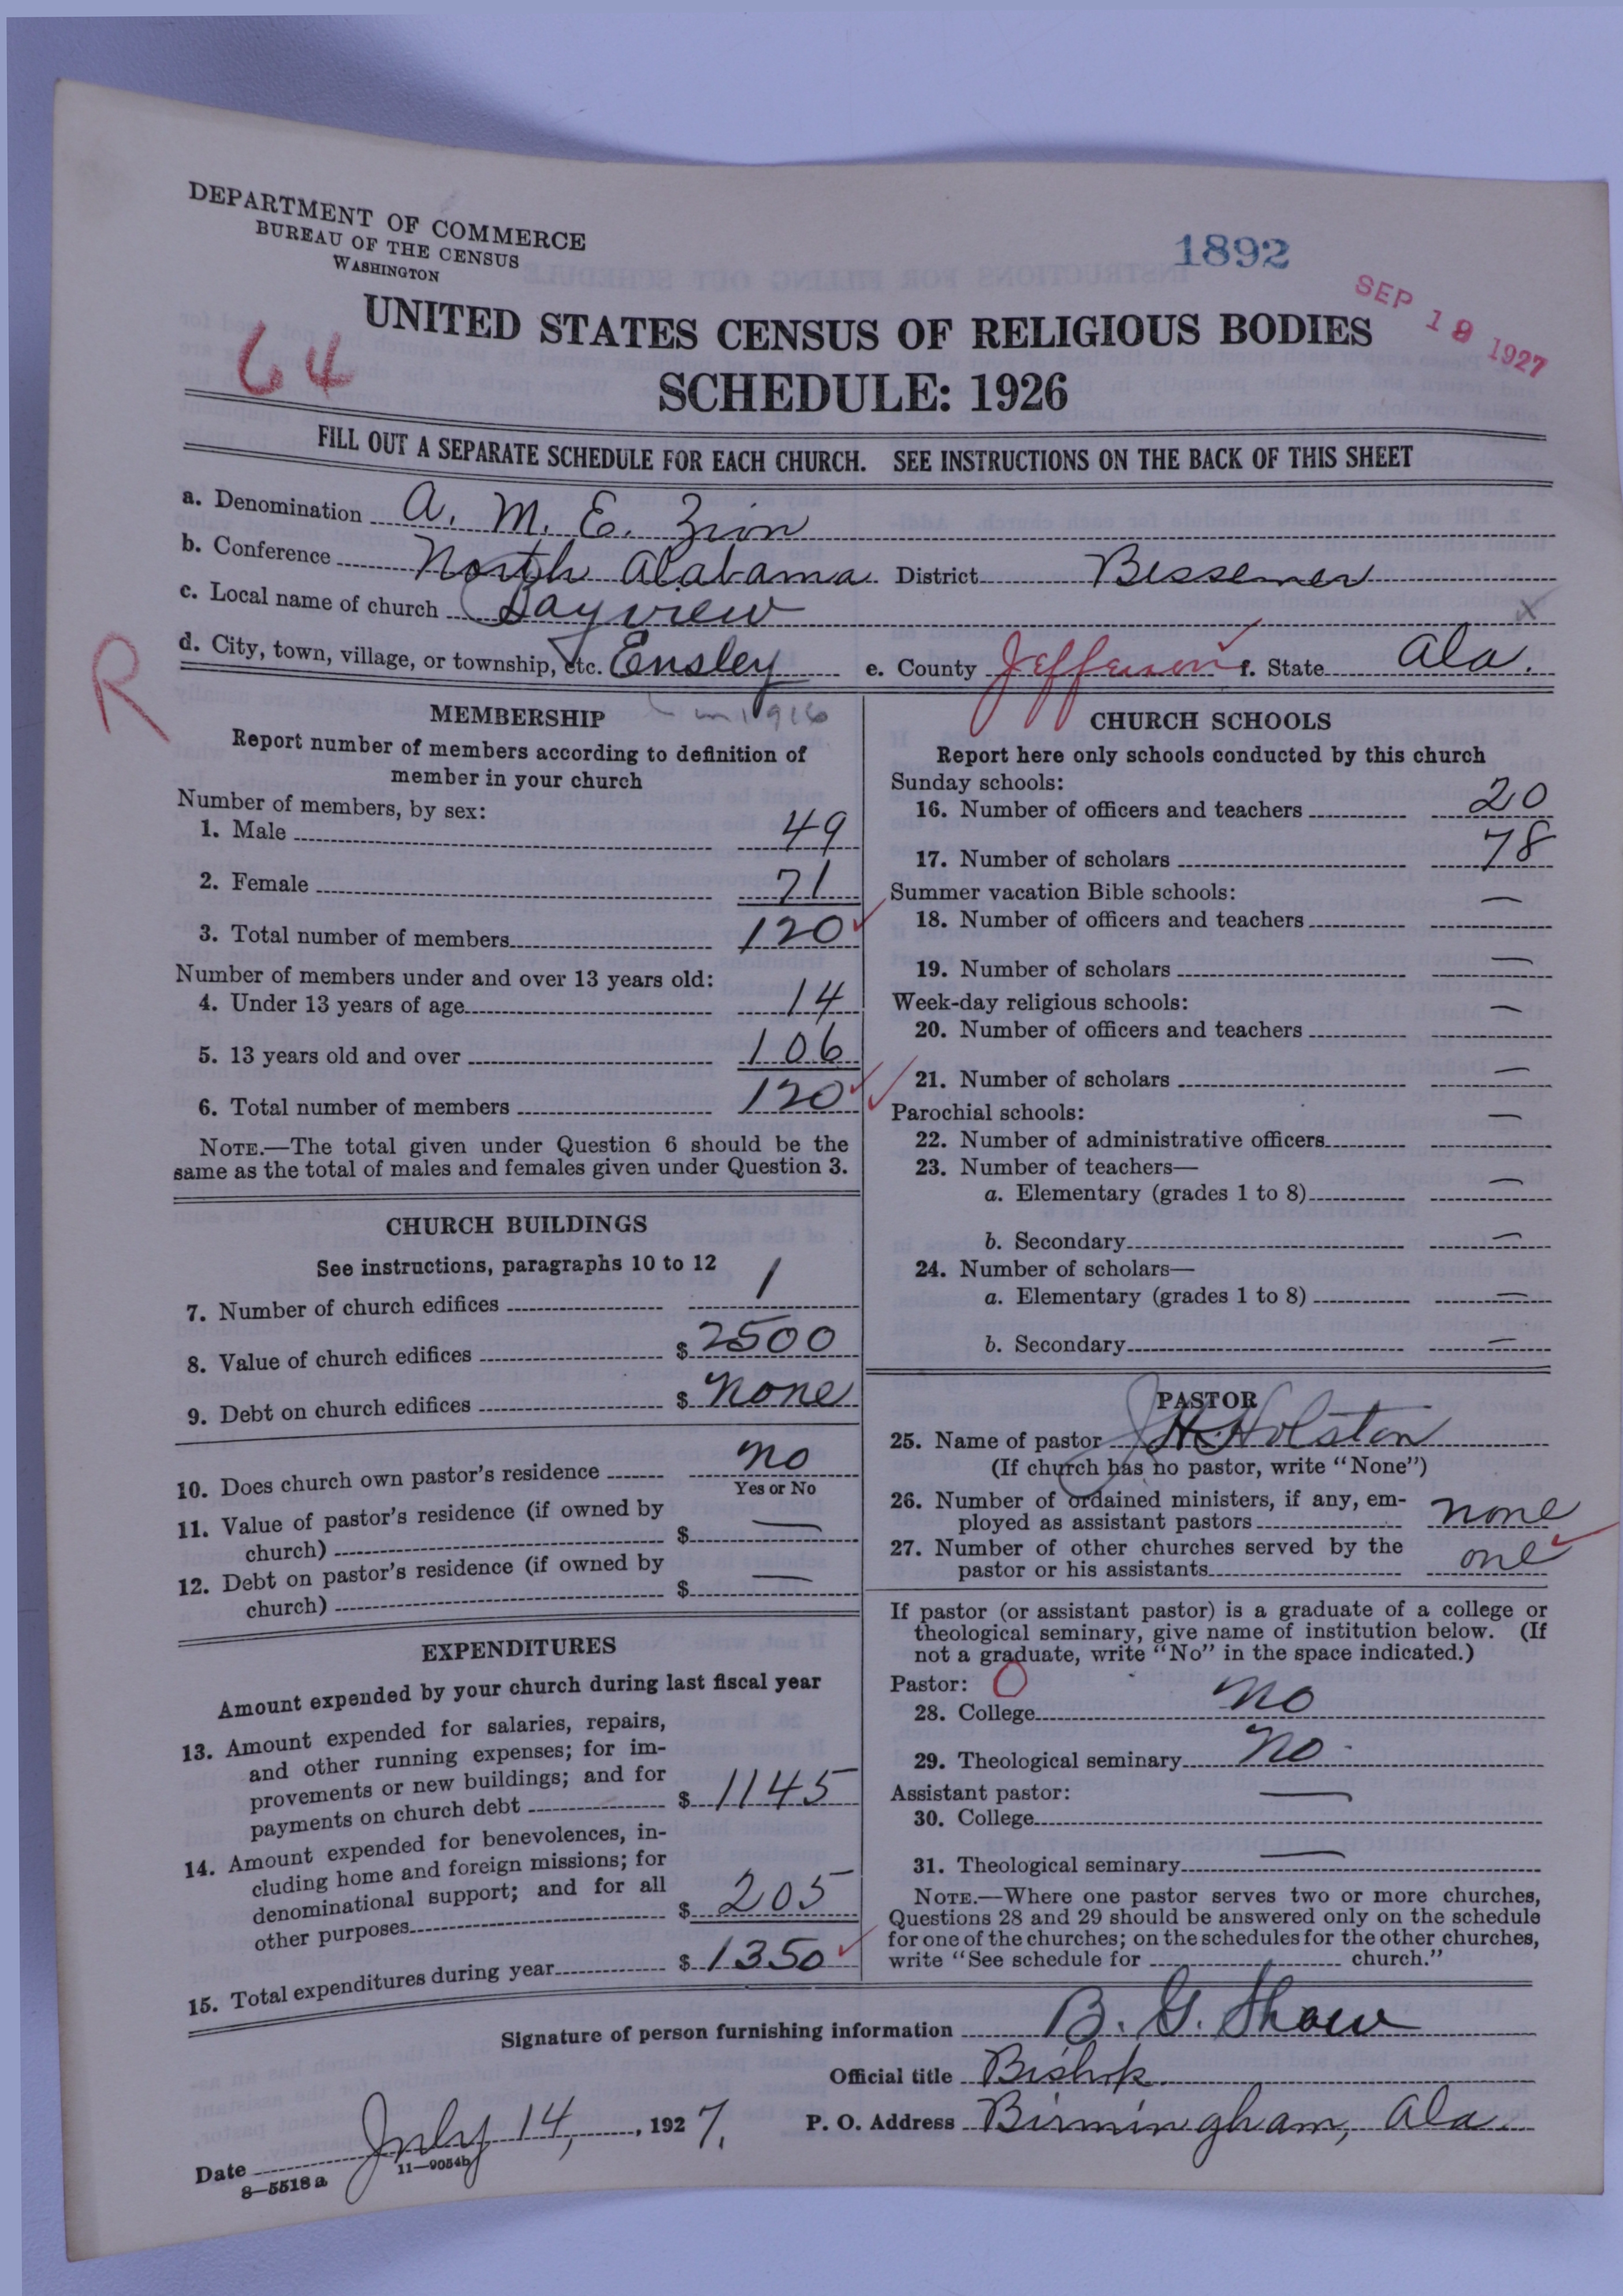 DEPARTMENT OF COMMERCE
BUREAU OF THE CENSUS
WASHINGTON
1892
SEP 19 1927
64
UNITED STATES CENSUS OF RELIGIOUS BODIES
SCHEDULE: 1926
FILL OUT A SEPARATE SCHEDULE FOR EACH CHURCH. SEE INSTRUCTIONS ON THE BACK OF THIS SHEET
a. Denomination A. M. E. Zion
b. Conference North Alabama District Bessemer
c. Local name of church Bayview x
d. City, town, village, or township, etc. Ensley e. County Jefferson f. State Ala.
R
MEMBERSHIP
in 1916
Report number of members according to definition of
member in your church
Number of members, by sex:
1. Male 49
2. Female 71
3. Total number of members 120
Number of members under and over 13 years old:
4. Under 13 years of age 14
5. 13 years old and over 106
6. Total number of members 120
NOTE.—The total given under Question 6 should be the
same as the total of males and females given under Question 3.
CHURCH BUILDINGS
See instructions, paragraphs 10 to 12
7. Number of church edifices 1
8. Value of church edifices $ 2500
9. Debt on church edifices $ none
10. Does church own pastor's residence no
Yes or No
11. Value of pastor's residence (if owned by
church) $ —
12. Debt on pastor's residence (if owned by
church) $ —
EXPENDITURES
Amount expended by your church during last fiscal year
13. Amount expended for salaries, repairs,
and other running expenses; for im-
provements or new buildings; and for
payments on church debt $ 1145
14. Amount expended for benevolences, in-
cluding home and foreign missions; for
denominational support; and for all
other purposes $ 205
15. Total expenditures during year $ 1350
CHURCH SCHOOLS
Report here only schools conducted by this church
Sunday schools:
16. Number of officers and teachers 20
17. Number of scholars 78
Summer vacation Bible schools:
18. Number of officers and teachers —
19. Number of scholars —
Week-day religious schools:
20. Number of officers and teachers —
21. Number of scholars —
Parochial schools:
22. Number of administrative officers —
23. Number of teachers—
a. Elementary (grades 1 to 8) —
b. Secondary —
24. Number of scholars—
a. Elementary (grades 1 to 8) —
b. Secondary —
PASTOR
25. Name of pastor J H Holston
(If church has no pastor, write "None")
26. Number of ordained ministers, if any, em-
ployed as assistant pastors none
27. Number of other churches served by the
pastor or his assistants one
If pastor (or assistant pastor) is a graduate of a college or
theological seminary, give name of institution below. (If
not a graduate, write "No" in the space indicated.)
Pastor: O
28. College no
29. Theological seminary no
Assistant pastor:
30. College —
31. Theological seminary —
NOTE.—Where one pastor serves two or more churches,
Questions 28 and 29 should be answered only on the schedule
for one of the churches; on the schedules for the other churches,
write "See schedule for church."
Signature of person furnishing information B. G. Shaw
Official title Bishop.
Date July 14, 1927. P. O. Address Birmingham, Ala.
8—5518a 11—9054b